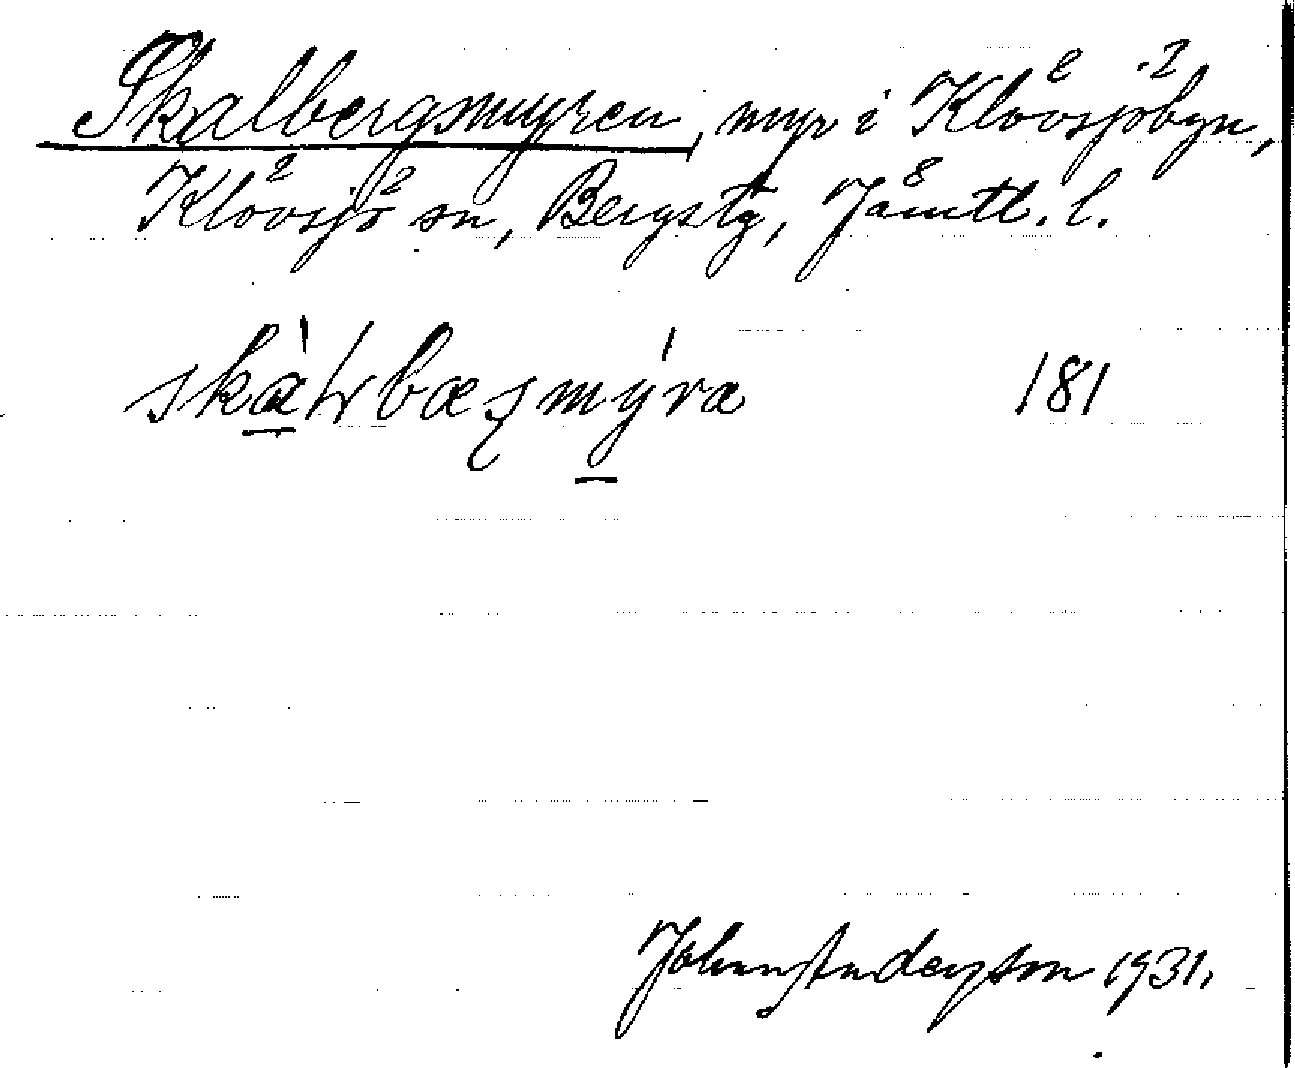 Skalbergsmyren, myr i Klövsjöbyn,
Klövsjö sn, Bergs tg, Jämtl. l.
181
John Anderson 1931.